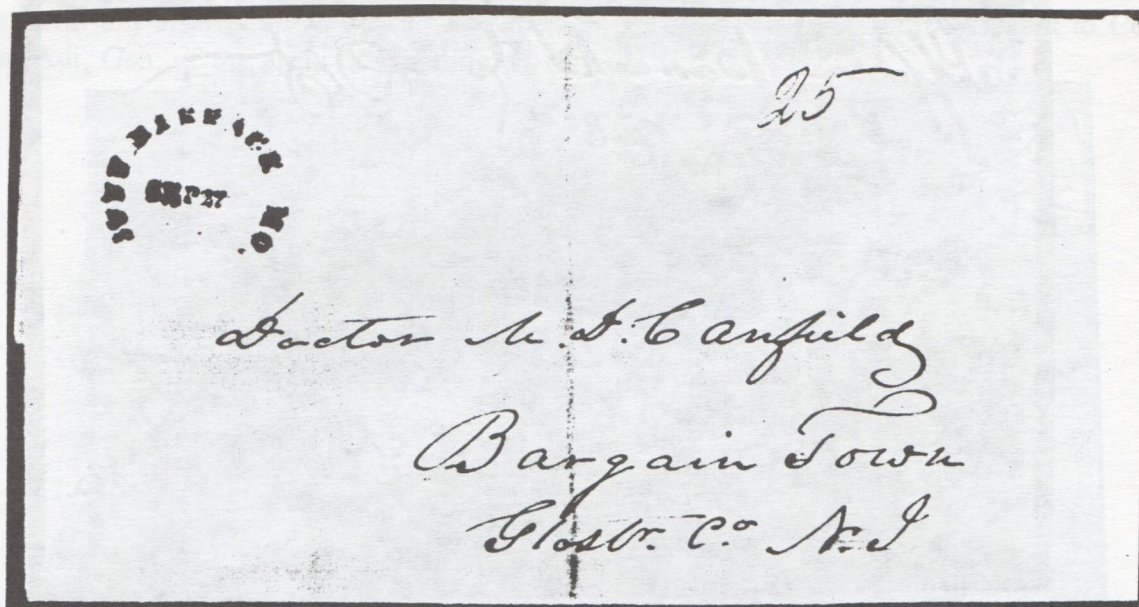 25
JEFF BARRACKS MO
SEP 27
Doctor M. D. Canfield
Bargain Town
Glostr. Co. N. J